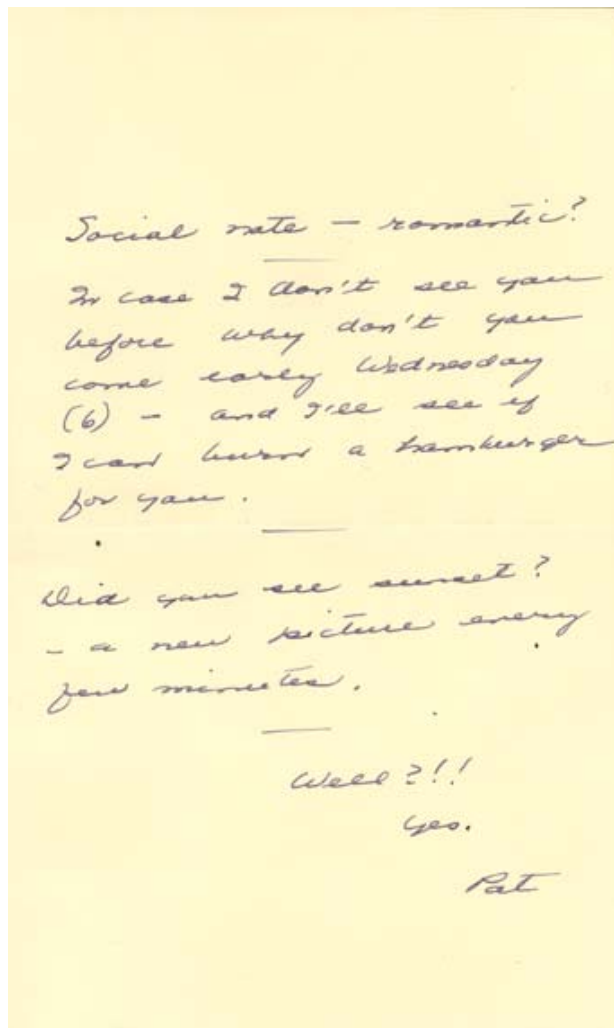 Social note – romantic?
In case I don't see you
before why don't you
come early Wednesday
(6) – and I'll see if
I can burn a hamburger
for you.
Did you see sunset?
– a new picture every
few minutes.
Well?!!
Yes.
Pat